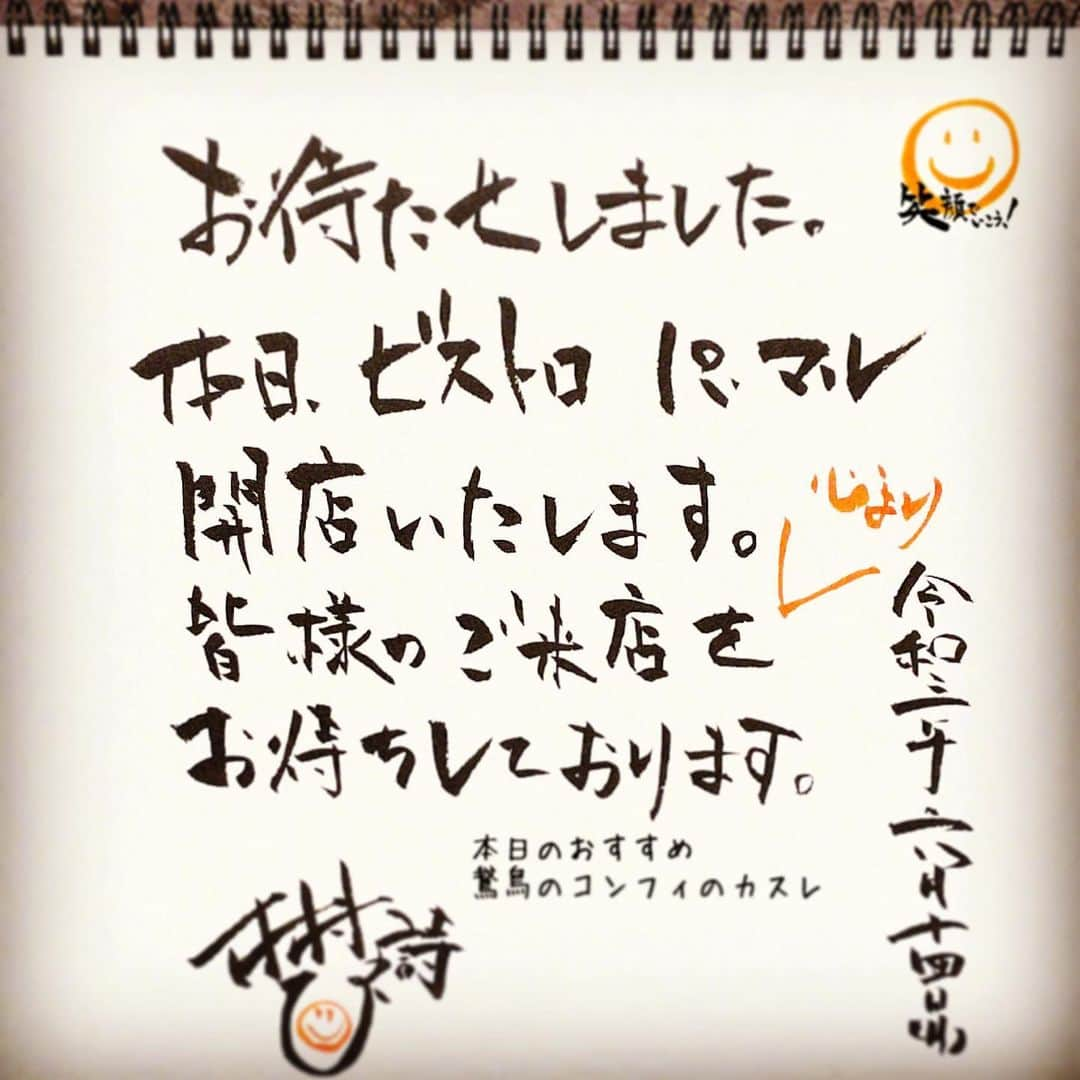 お待たせしました。
笑顔でいこう!
本日、ビストロ パ・マル
開店いたします。
心より
皆様のご来店を
お待ちしております。
令和三年六月十四日
本日のおすすめ
鵞鳥のコンフィのカスレ